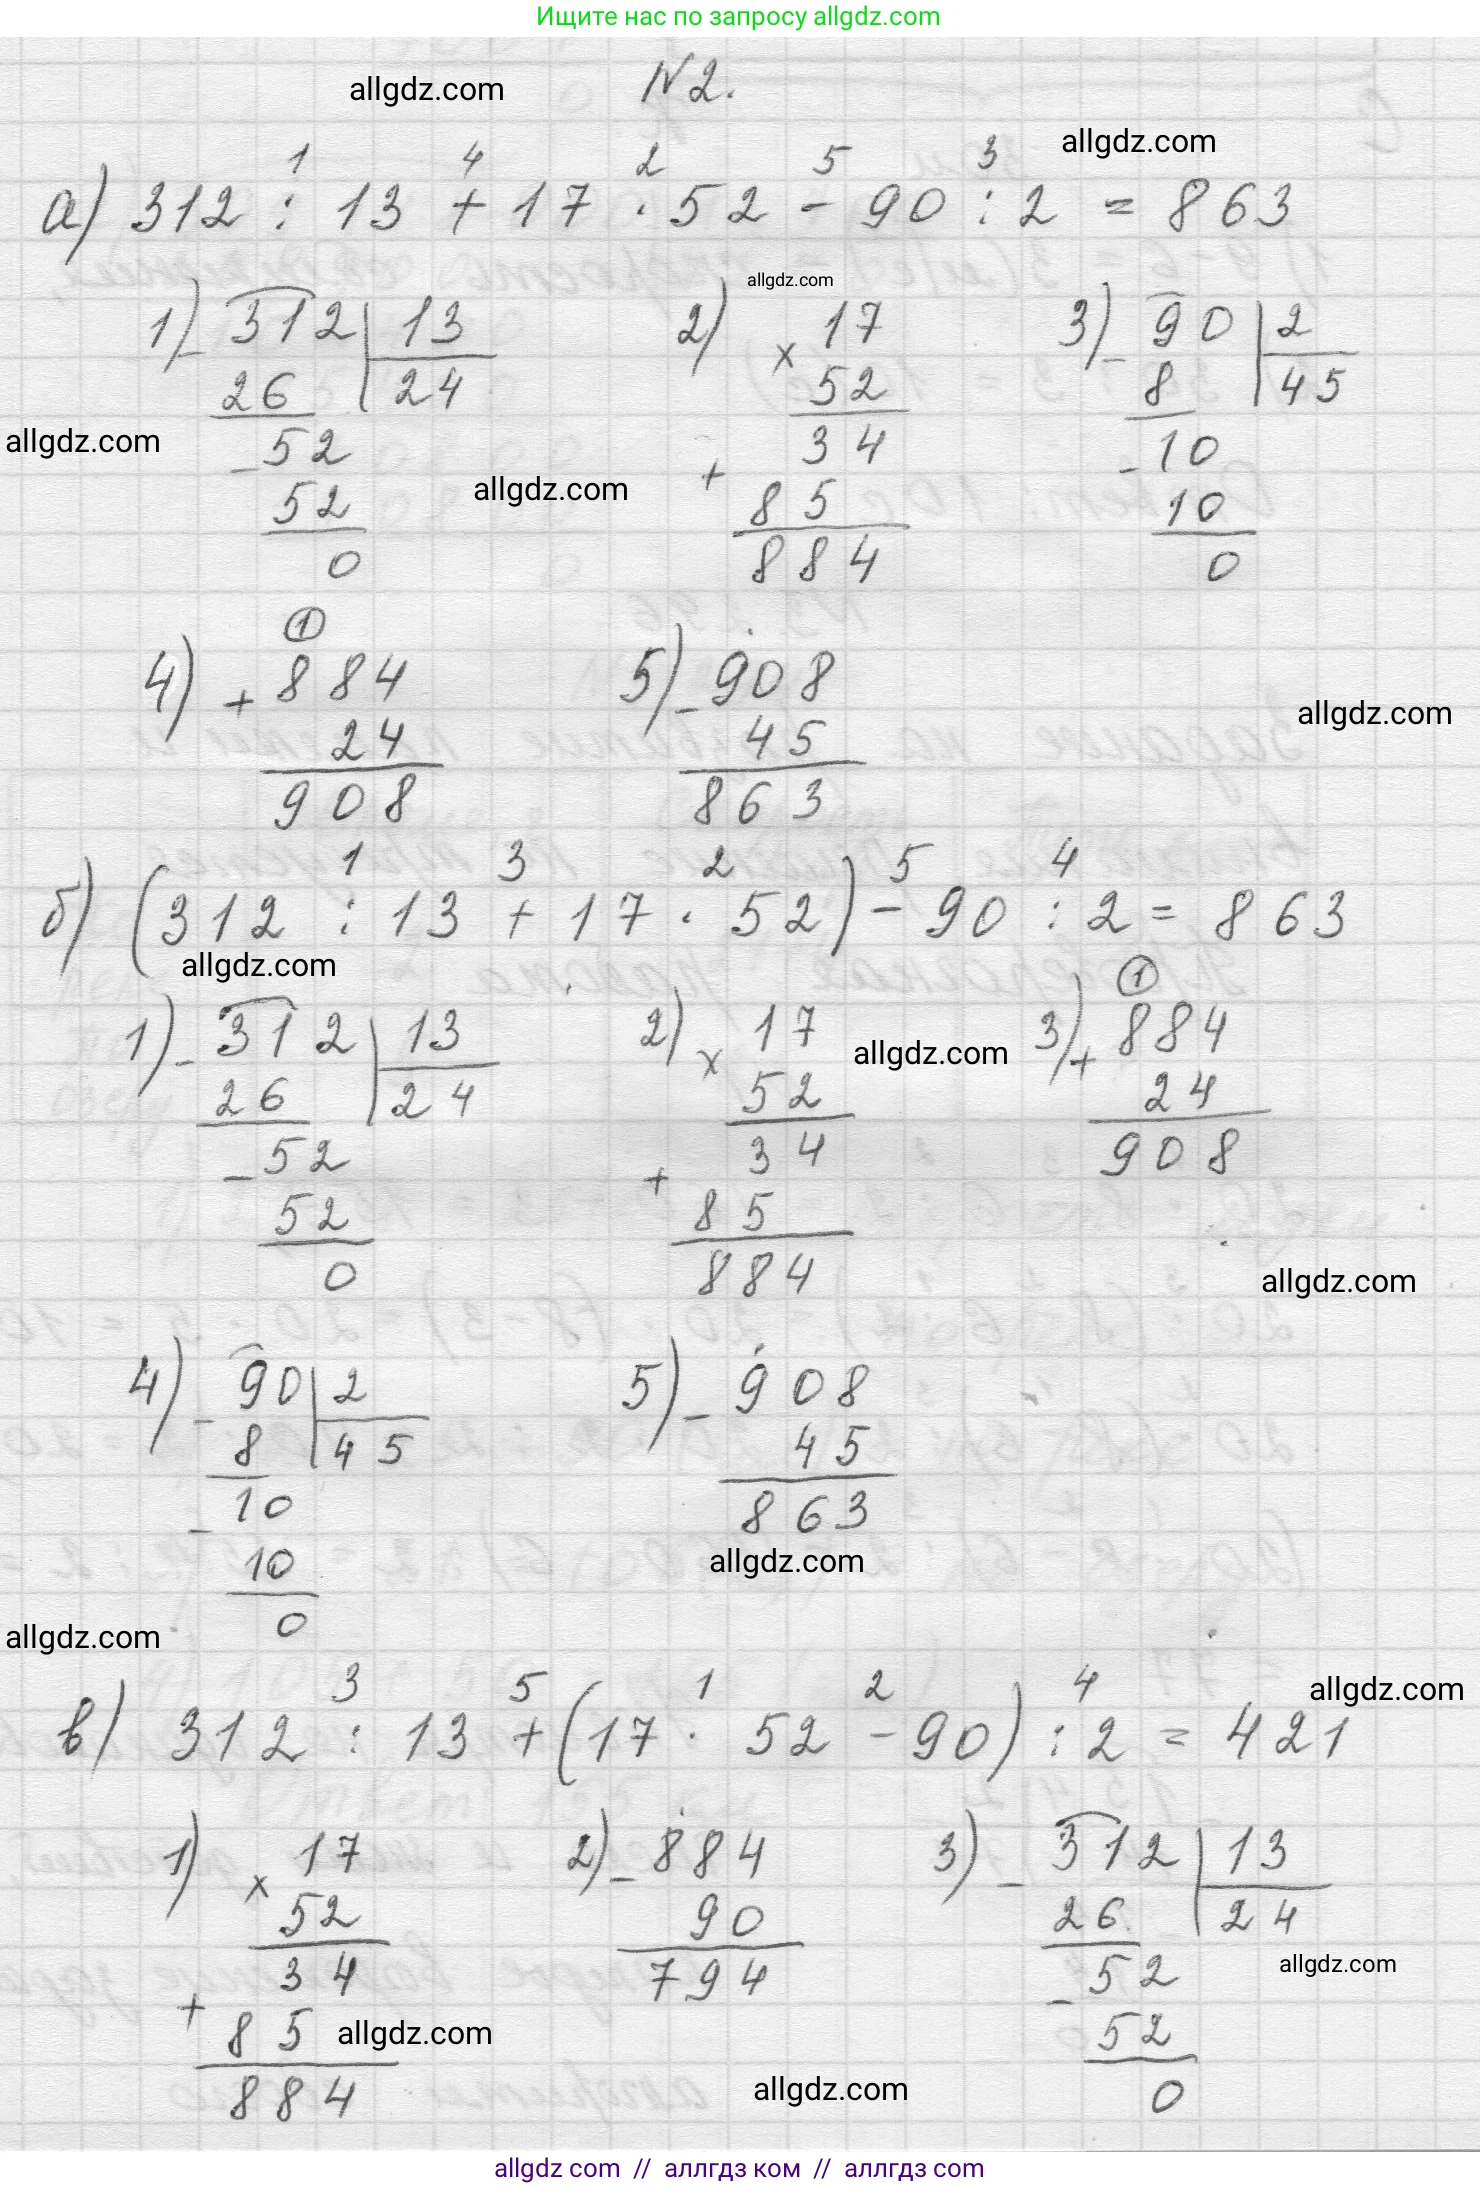 Ищите нас по запросу allgdz.com
allgdz.com
N2.
allgdz.com
1 4 2 5 3
а) 312 : 13 + 17 · 52 - 90 : 2 = 863
allgdz.com
1) - 312 | 13
26 | 24
- 52
52
0
2) × 17
52
34
+ 85
884
3) - 90 | 2
8 | 45
- 10
10
0
allgdz.com
allgdz.com
4) 1
+ 884
24
908
5) - 908
45
863
allgdz.com
1 3 2 5 4
б) (312 : 13 + 17 · 52) - 90 : 2 = 863
allgdz.com
1) - 312 | 13
26 | 24
- 52
52
0
2) × 17
52
34
+ 85
884
allgdz.com
3) 1
+ 884
24
908
allgdz.com
4) - 90 | 2
8 | 45
- 10
10
0
5) - 908
45
863
allgdz.com
allgdz.com
allgdz.com
3 5 1 2 4
в) 312 : 13 + (17 · 52 - 90) : 2 = 421
1) × 17
52
34
+ 85
884
allgdz.com
2) - 884
90
794
3) - 312 | 13
26 | 24
- 52
52
0
allgdz.com
allgdz.com
allgdz com // аллгдз ком // аллгдз com